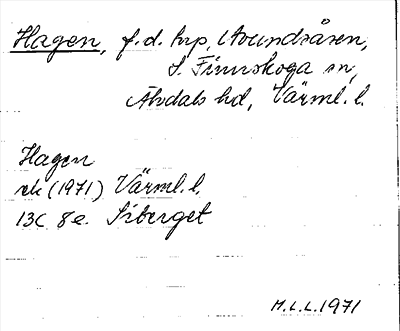 Hagen, f.d. trp, Avundsåsen,
S. Finnskoga sn,
Älvdals hd, Värml. l.
Hagen
ek (1971) Värml. l.
13C 8e. Siberget
M.L.L. 1971